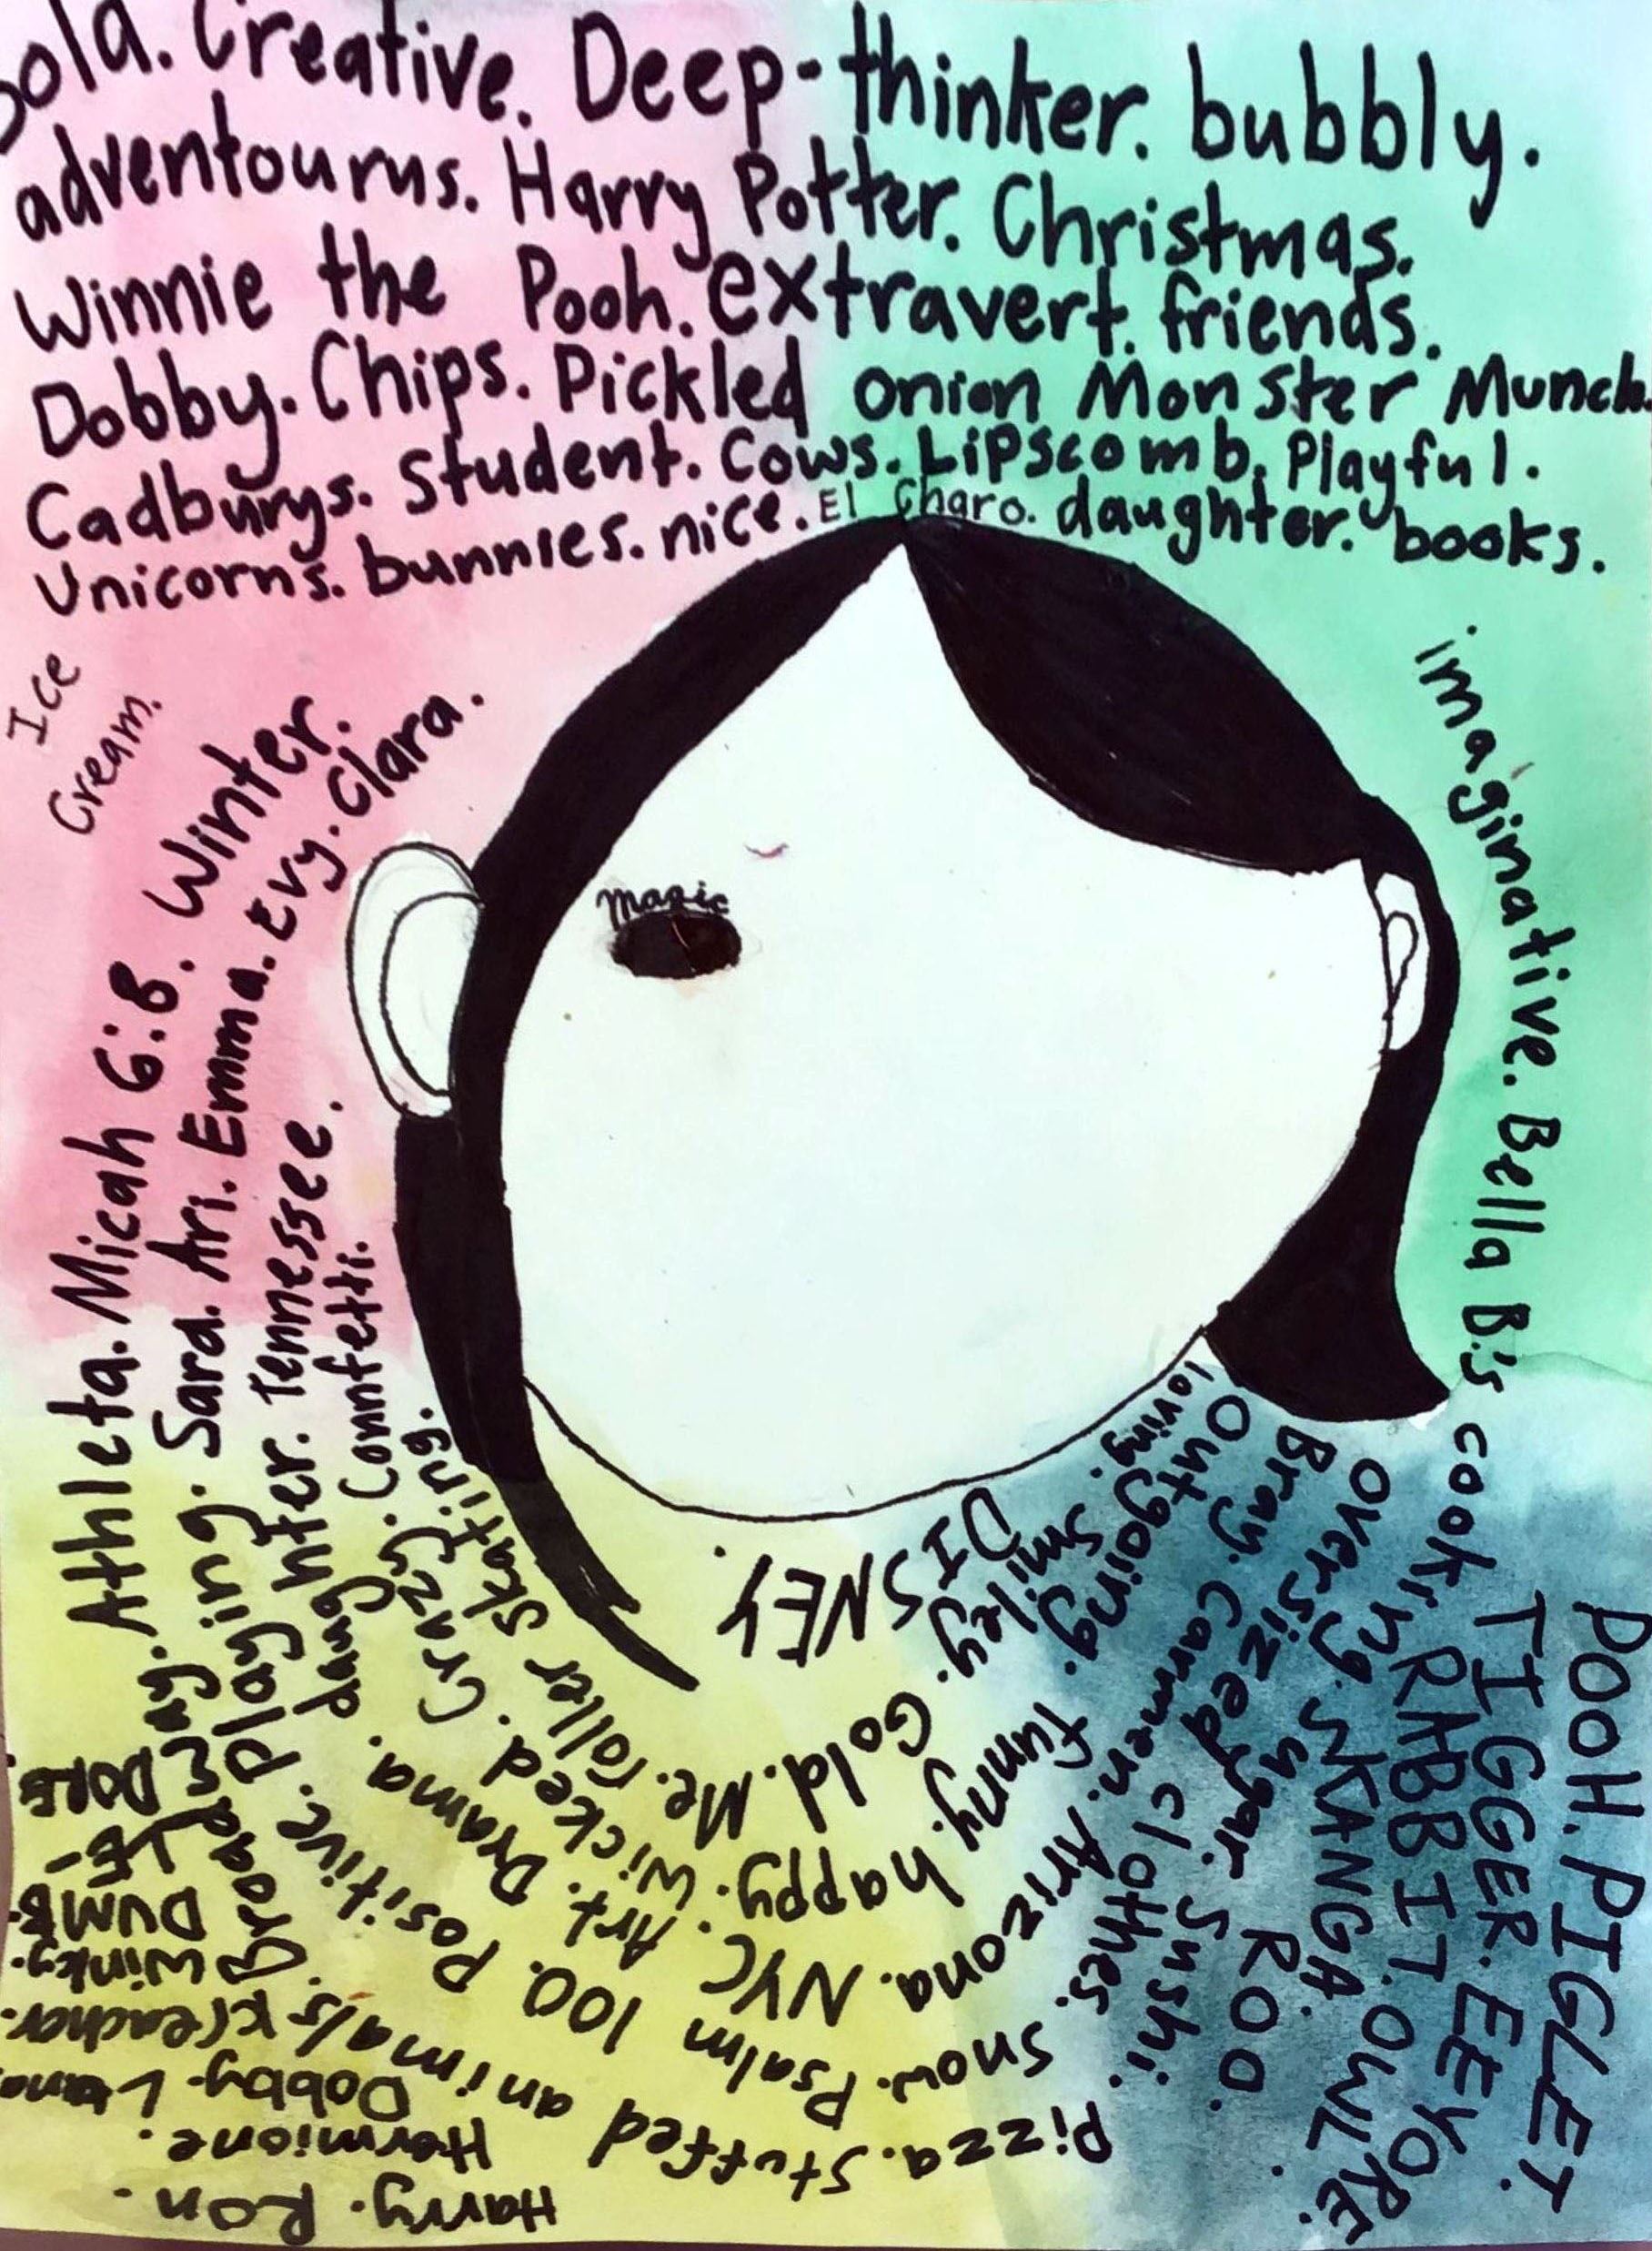 Bold. Creative. Deep-thinker. bubbly.
adventourus. Harry Potter. Christmas.
Winnie the Pooh. extravert. friends.
Dobby. Chips. Pickled onion Monster Munch.
Cadburys. Student. Cows. Lipscomb. Playful.
Unicorns. bunnies. nice. El Charo. daughter. books.
Ice
Cream.
magic
imaginative. Bella B.'s cooking. sugar. Sushi.
Pooh. PIGLET.
TIGGER. EEYORE.
RABBIT. OWL.
KANGA. ROO.
oversized clothes.
Bray. Carmen. Arizona. snow. Psalm 100. Positive. Playing. Sara. Ari. Emma. Evy. Clara.
Outgoing. funny. happy. wicked. Crazy. Confetti.
loving. Smiley. Gold. Me. roller skating.
DISNEY.
NYC. Art. Drama. daughter. Tennessee.
Pizza. Stuffed animals. Broadway. Athleta. Micah 6:8. Winter.
Harry. Ron.
Hermione.
Dobby.
Kreacher.
Winky.
DUMB-
LE-
DORE.